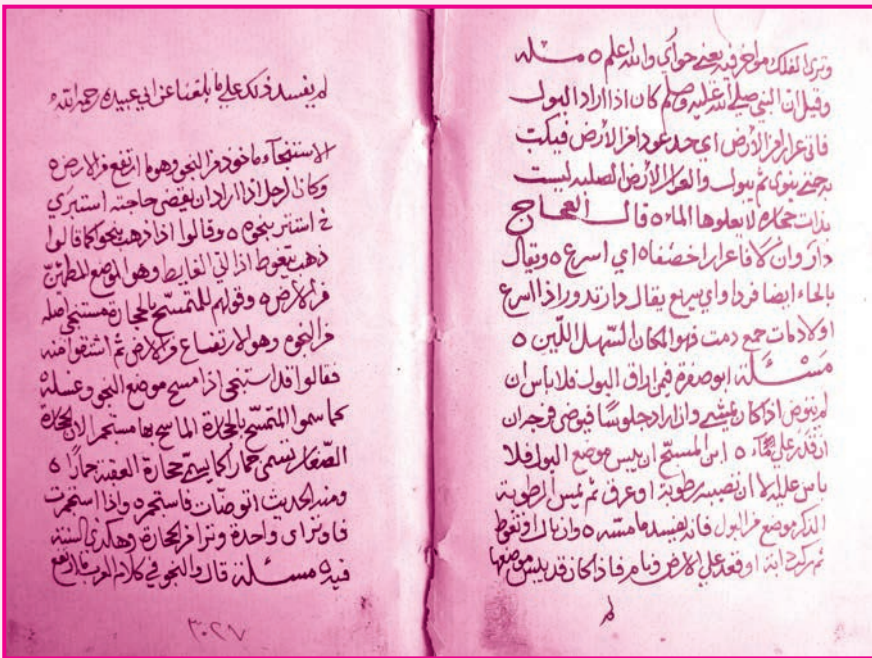 وترى الفلك مواخر فيه يعني جواري والله اعلم ه مسلة
وقيل ان النبي صلى الله عليه وسلم كان اذا اراد البول
فاتى عزازا من الأرض اخذ عودا من الأرض فينكت
به حتى يثرى ثم يبول والعزاز الأرض الصلبة ليست
بذات حجارة لا يعلوها الماء ه قال العجاج
اي اسرع ه ويقال
بالحاء ايضا اي سريع يقال اذا اسرع
جمع دمث فهو المكان السهل اللين ه
مسئلة ابو صفرة فيمن اراق البول فلا باس ان
لم يتوض اذا كان يمشي وان اراد جلوسا فيوضي فرجه ان
ان قدر على ماء ه ابن المسبح ان يبس موضع البول فلا
باس عليه الا ان تصيبه رطوبة او عرق ثم يمس الرطوبة
الذكر موضع من البول فانه يفسد ما مسه ه وان بال او تغوط
ثم ركب دابة او قعد على الارض ونام فاذا كان قد يبس موضعها
لم
لم يفسد ذلك على ما بلغنا عن ابي عبيدة رحمه الله
الاستنجاء ماخوذ من النجو وهو ما ارتفع من الارض ه
وكان الرجل اذا اراد ان يقضي حاجته
استتر بنجوه ه وقالوا اذا ذهب ينجو كما قالوا
ذهب يتغوط اذا اتى الغايط وهو الموضع المطمئن
من الارض ه وقولهم للتمسح بالحجارة مستنجي اصله
من النجوه وهو الارتفاع من الارض ثم اشتقوا منه
فقالوا قد استنجى اذا مسح موضع النجو وغسله
كما سموا المتمسح بالحجارة الماسح بها مستجمر لان الحجارة
الصغار تسمى جمارا كما يسمى حجارة العقبة جمارا ه
ومنه الحديث اذا توضات فاستنجره واذا استجمرت
فاوتر اي واحدة وترا من الحجارة وهكذى السنة
فيه ه مسئلة قال والنجو في كلام العرب ما ارتفع
٣٠٢٧